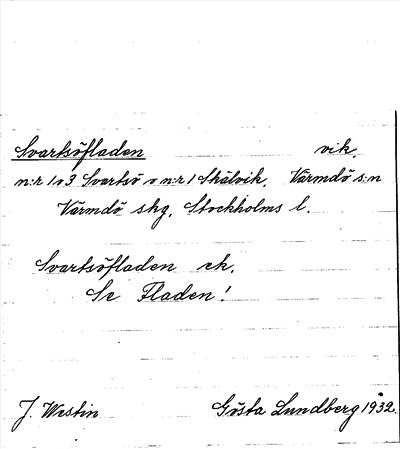 Svartsöfladen vik.
n:r 1 o 3 Svartsö o n:r 1 Skälvik. Värmdö s:n
Värmdö skg, Stockholms l.
Svartsöfladen ek.
Se Fladen!
J. Westin Gösta Lundberg 1932.